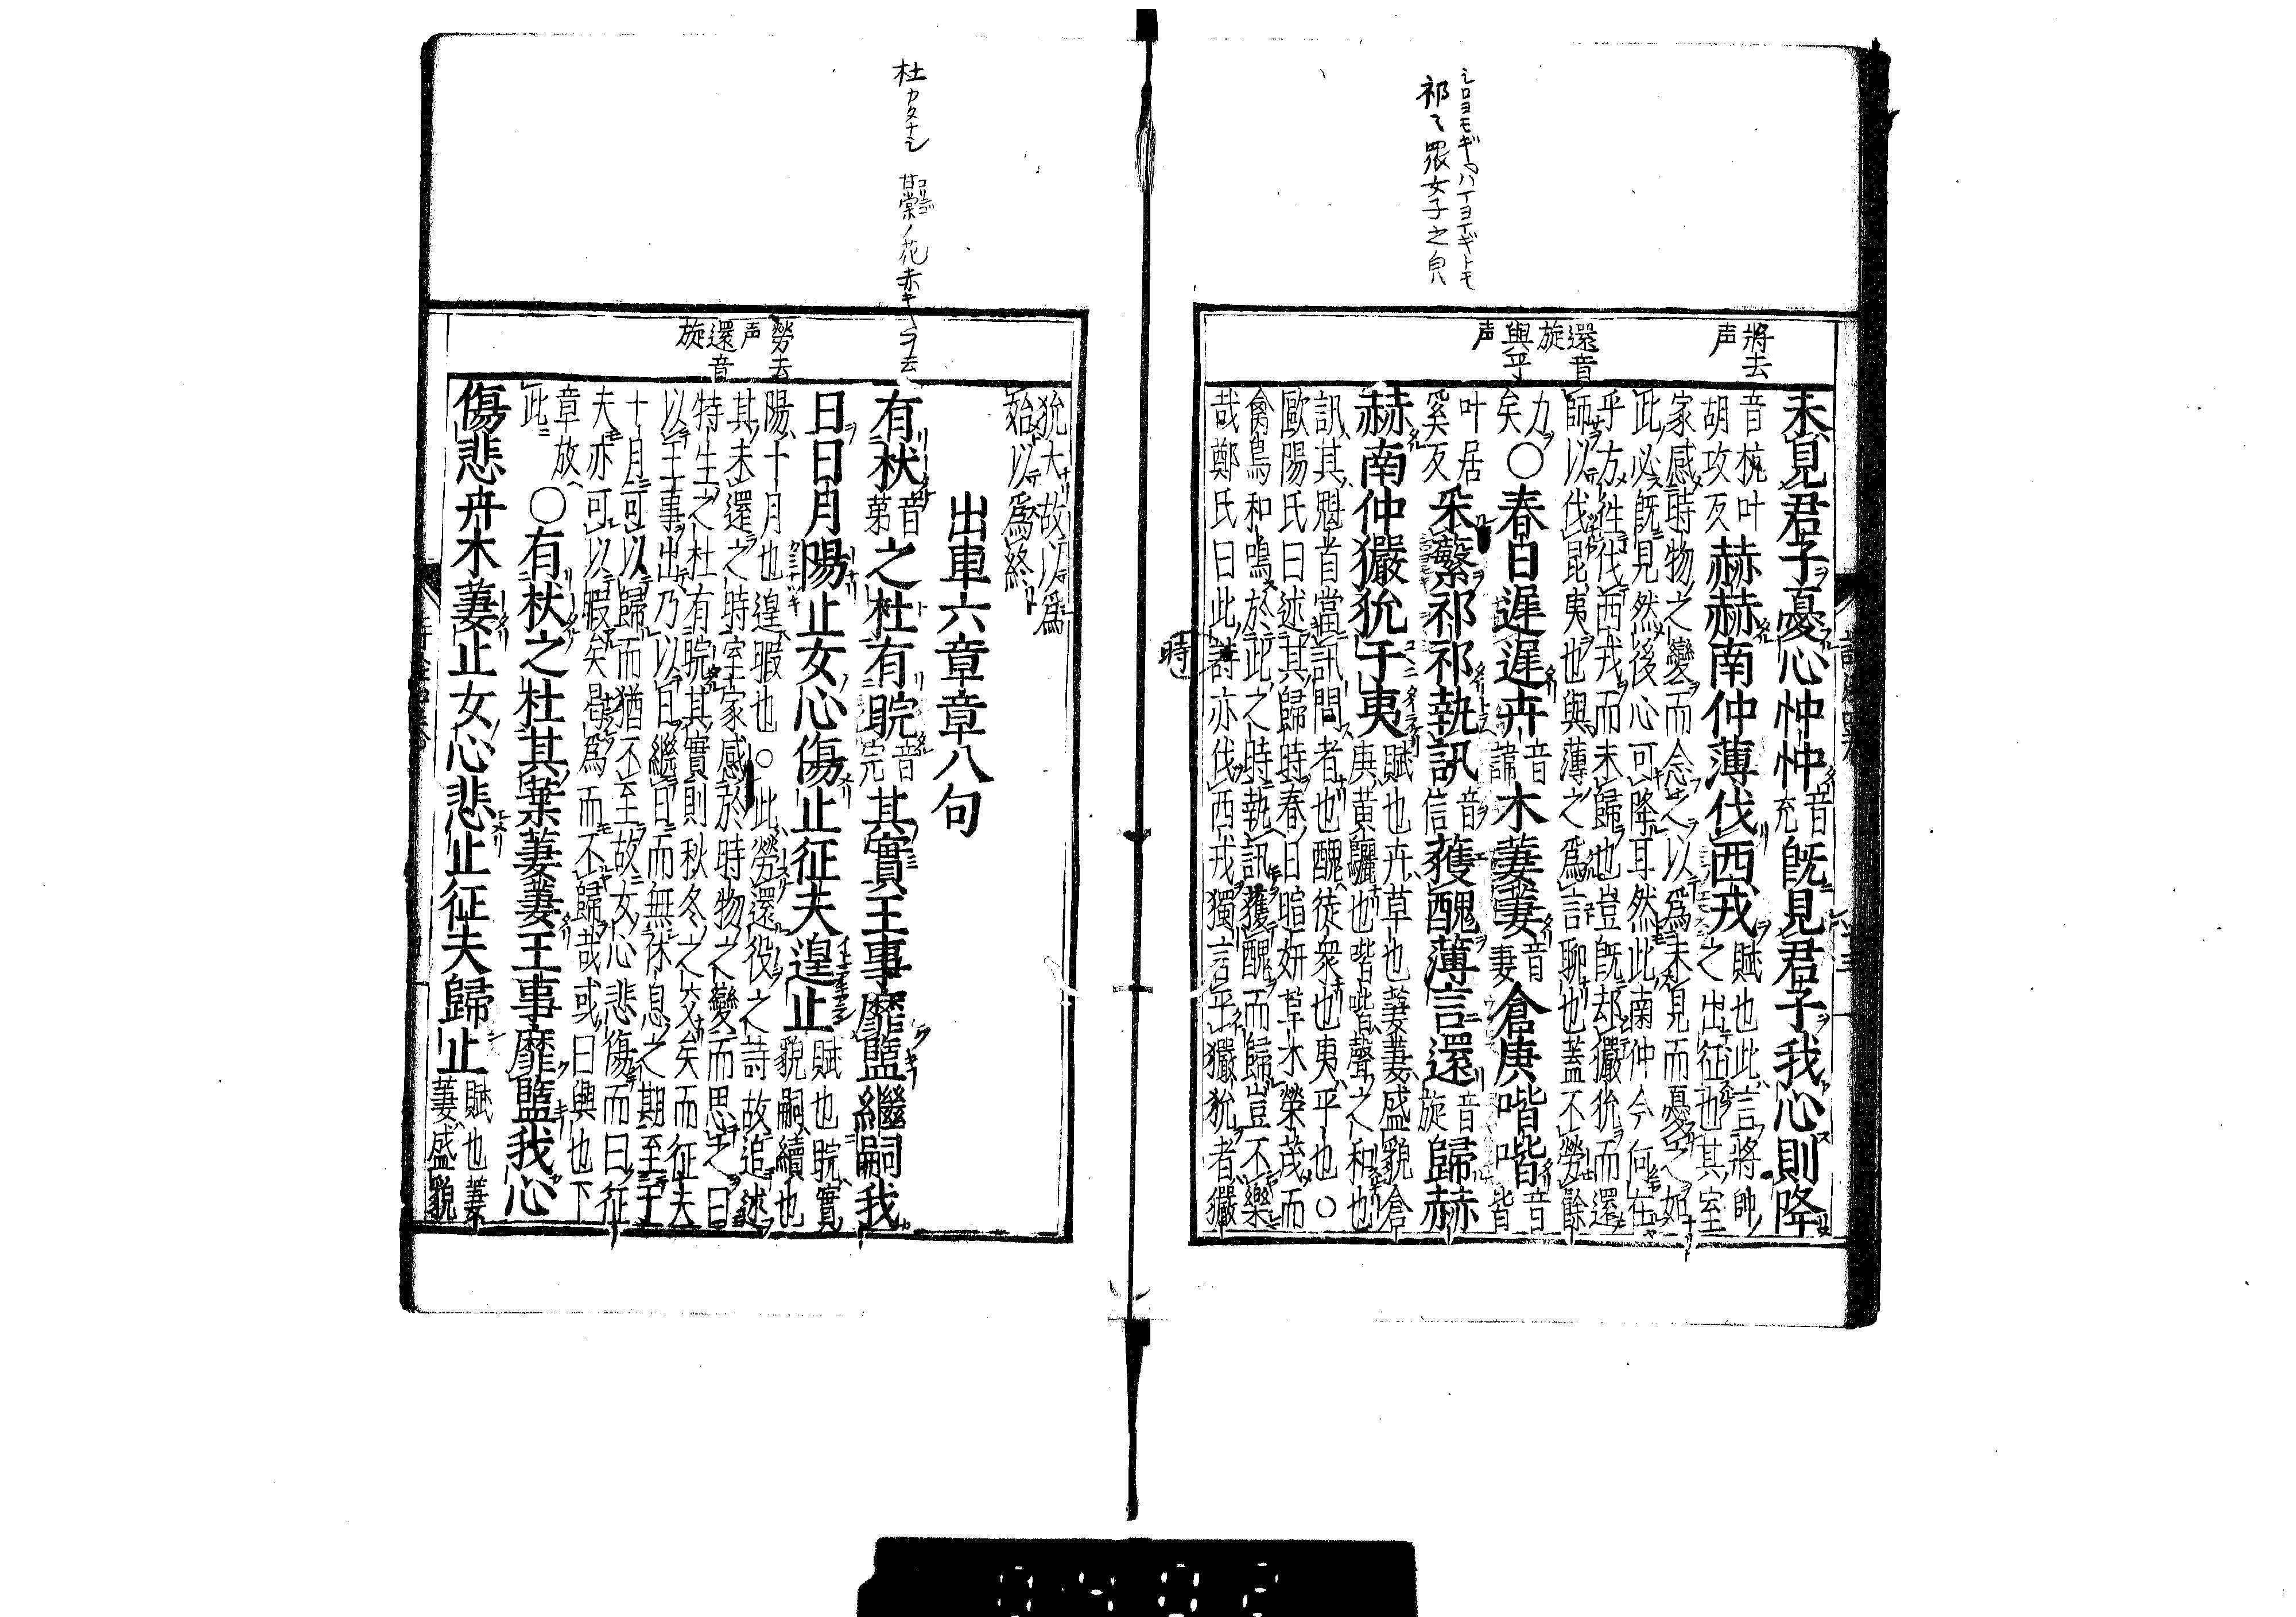 シロヨモギ
祁〻衆女子之皃
將去声
還音旋
與平声
未見君子憂心忡忡音充既見君子我心則降
音杭叶胡攻反赫赫南仲薄伐西戎賦也此言將帥之出征也其室
家感時物之變而念之以爲未見而憂之如
此必既見然後心可降耳然此南仲今何在
乎方往伐西戎而未歸也豈既却玁狁而還
師以伐昆夷也與薄之爲言聊也蓋不勞餘
力矣○春日遲遲卉音諱木萋萋音妻倉庚喈喈音皆
叶居奚反采蘩祁祁執訊音信獲醜薄言還音旋歸赫
赫南仲玁狁于夷賦也卉草也萋萋盛貌倉庚黃鸝也喈喈聲之和也
訊其魁首當訊問者也醜徒衆也夷平也○
歐陽氏曰述其歸時春日暄妍草木榮茂而
禽鳥和鳴於此之時執訊獲醜而歸豈不樂
哉鄭氏曰此詩亦伐西戎獨言平玁狁者玁
時
杜カタナシ 甘棠ノ花赤キヲ云
勞去声
還音旋
狁大故以爲
始以爲終
出車六章章八句
有杕音第之杜有睆音完其實王事靡盬繼嗣我
日日月陽止女心傷止征夫遑止賦也睆實貌嗣續也
陽十月也遑暇也○此勞還役之詩故追述
其未還之時室家感於時物之變而思之曰
特生之杜有睆其實則秋冬之交矣而征夫
以王事出乃以日繼日而無休息之期至于
十月可以歸而猶不至故女心悲傷而曰征
夫亦可以暇矣曷爲而不歸哉或曰興也下
章放此○有杕之杜其葉萋萋王事靡盬我心
傷悲卉木萋止女心悲止征夫歸止賦也萋萋盛貌